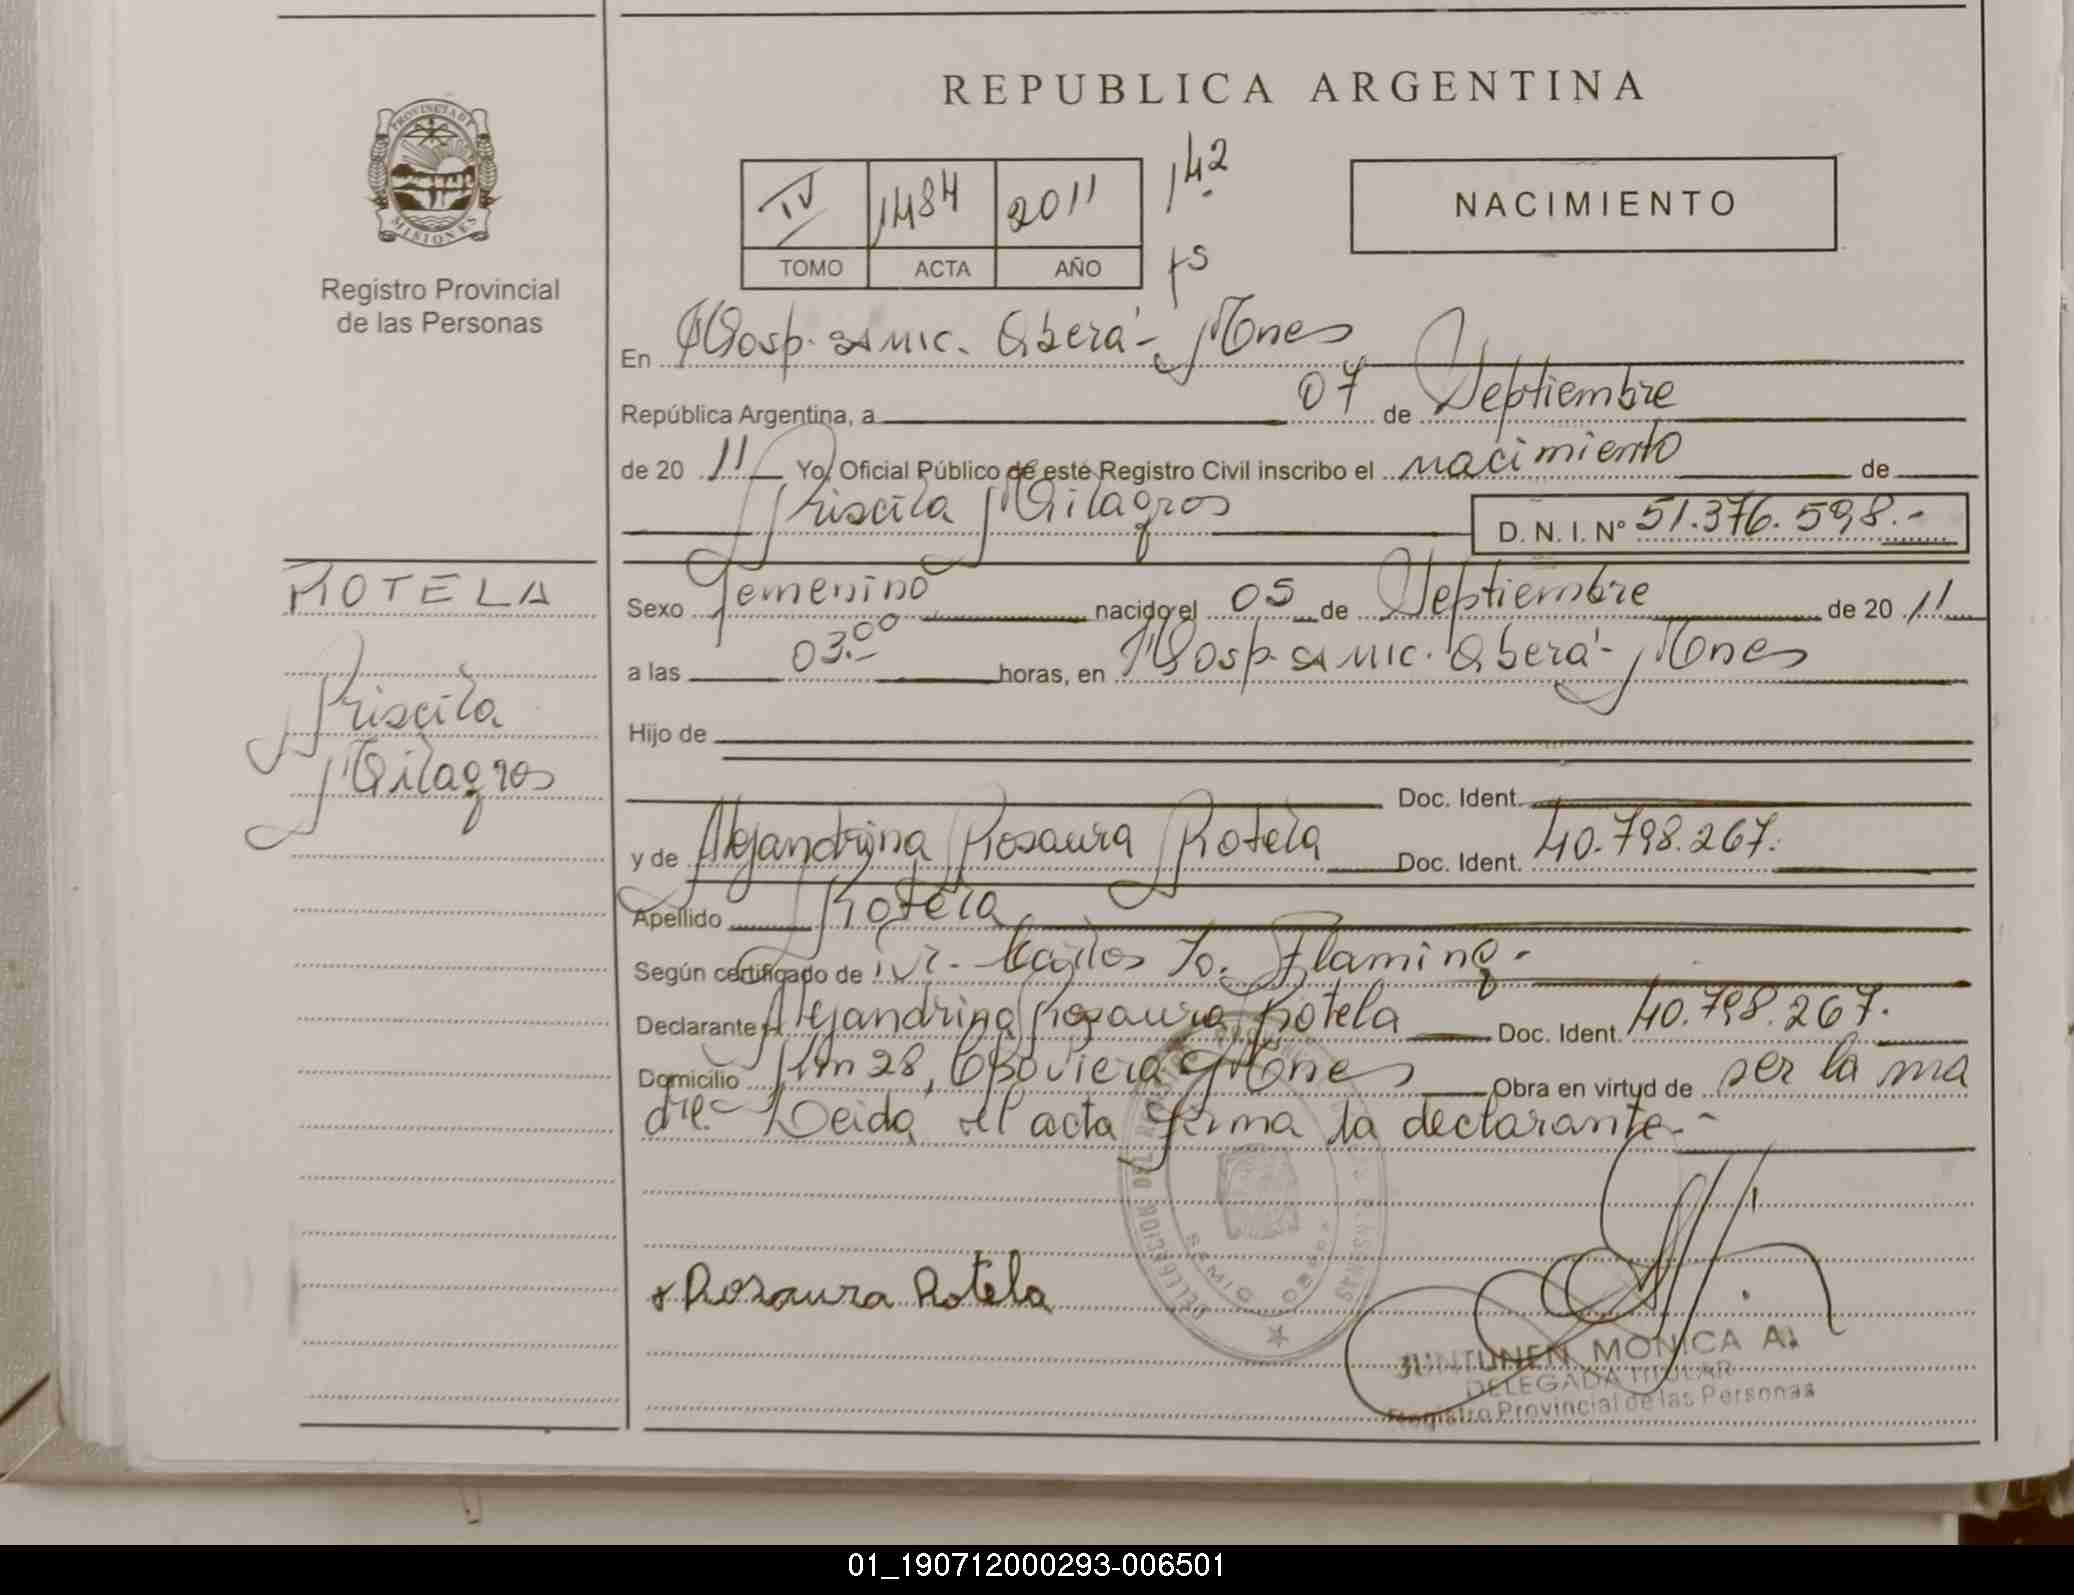 REPUBLICA ARGENTINA
PROVINCIA DE
MISIONES
Registro Provincial
de las Personas
IV 1484 2011
TOMO ACTA AÑO
142
NACIMIENTO
En Hosp. Samic. Oberá - Mnes
República Argentina, a 07 de Septiembre
de 20 11 Yo, Oficial Público de este Registro Civil inscribo el nacimiento de
Priscila Milagros D. N. I. Nº 51.376.598.-
ROTELA
Priscila
Milagros
Sexo Femenino nacido el 05 de Septiembre de 20 11
a las 03.00 horas, en Hosp. Samic. Oberá - Mnes
Hijo de
Doc. Ident.
y de Alejandrina Rosaura Rotela Doc. Ident. 40.798.267.
Apellido Rotela
Según certificado de Dr. Carlos Flaming.-
Declarante Alejandrina Rosaura Rotela Doc. Ident. 40.798.267.
Domicilio Km 28, Mnes Obra en virtud de ser la ma
dre. Leida el acta firma la declarante.-
Rosaura Rotela
JUNTUNEN MONICA A.
DELEGADA TITULAR
Registro Provincial de las Personas
01_190712000293-006501